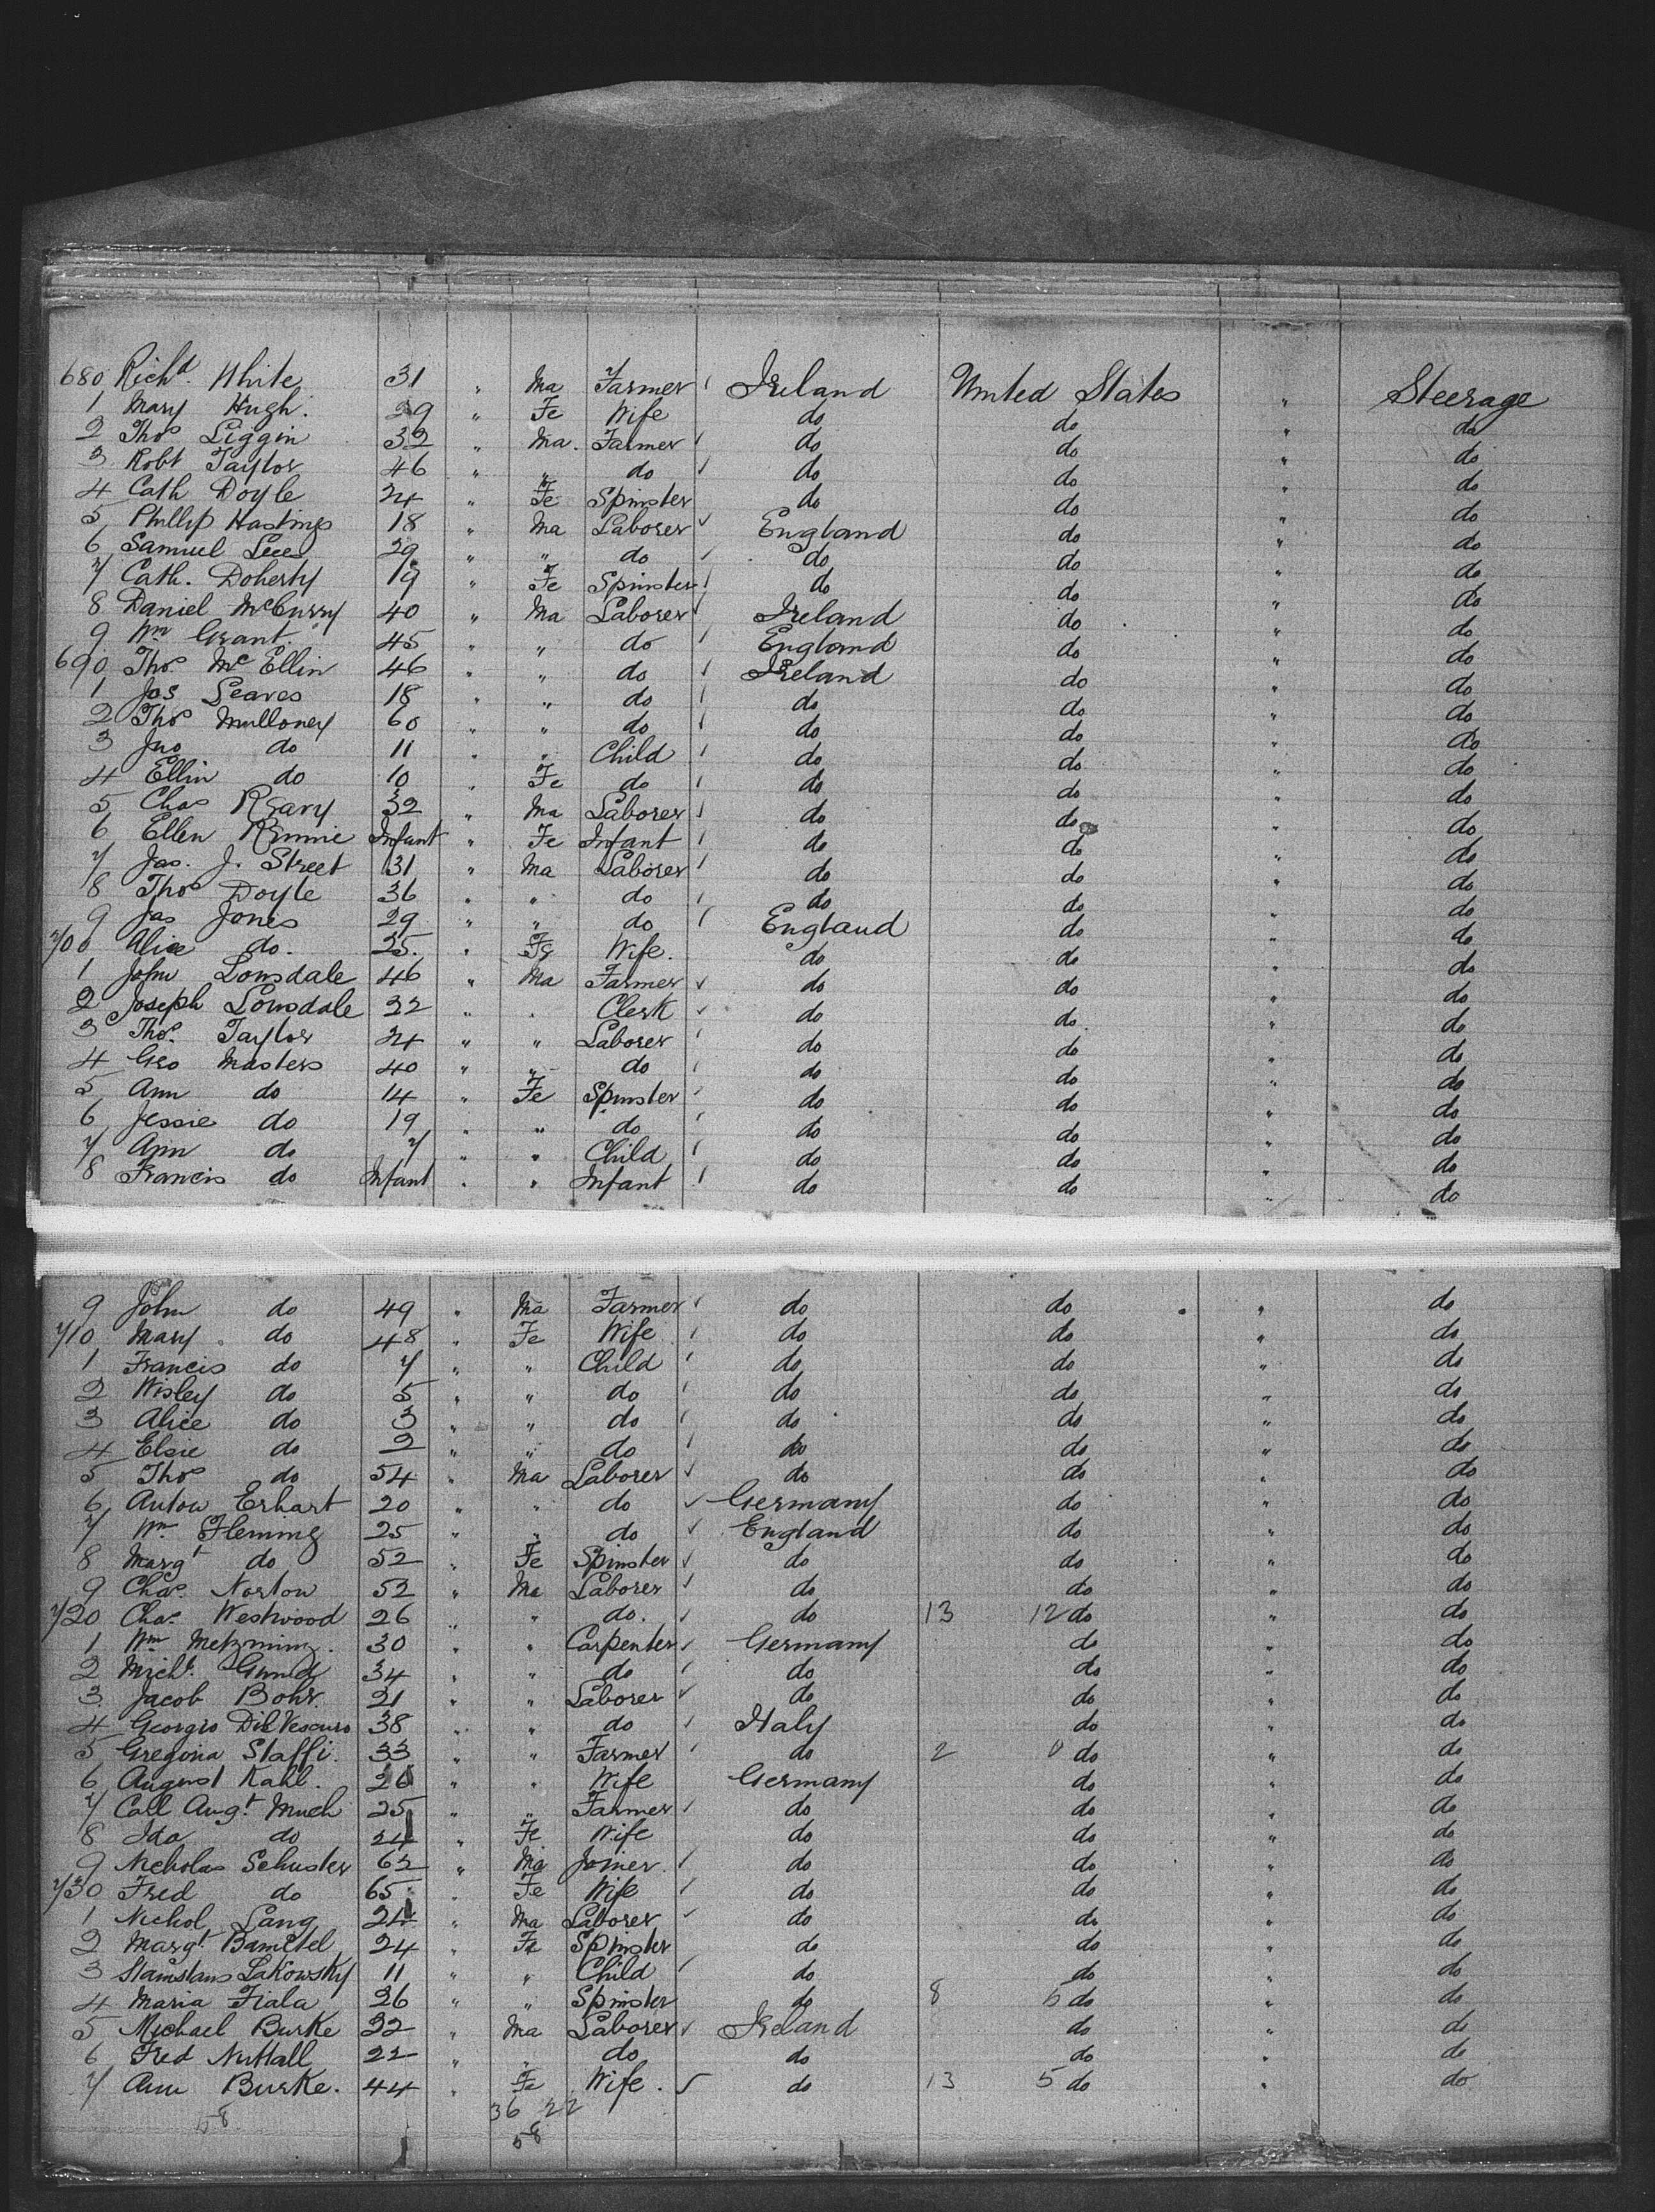 680 Richd. White 31 " Ma Farmer Ireland United States " Steerage
1 Mary Hugh. 29 " Fe Wife do do " do
2 Thos Liggin 32 " Ma. Farmer do do " do
3 Robt Taylor 46 " " do do do " do
4 Cath Doyle 24 " Fe Spinster do do " do
5 Phillip Hastings 18 " Ma Laborer England do " do
6 Samuel Lees 29 " " do do do " do
7 Cath. Doherty 19 " Fe Spinster do do " do
8 Daniel McCurry 40 " Ma Laborer Ireland do " do
9 Wm Grant. 45 " " do England do " do
690 Thos McEllin 46 " " do Ireland do " do
1 Jas Leaves 18 " " do do do " do
2 Thos Mulloney 60 " " do do do " do
3 Jno do 11 " " Child do do " do
4 Ellin do 10 " Fe do do do " do
5 Chas 32 " Ma Laborer do do " do
6 Ellen Infant " Fe Infant do do " do
7 Jas. J. Street 31 " Ma Laborer do do " do
8 Thos Doyle 36 " " do do do " do
9 Jas Jones 29 " " do England do " do
700 Alice do. 25. " Fe Wife. do do " do
1 John Lonsdale 46 " Ma Farmer do do " do
2 Joseph Lonsdale 22 " " Clerk do do. " do
3 Thos. Taylor 24 " " Laborer do do " do
4 Geo Masters 40 " " do do do " do
5 Ann do 14 " Fe Spinster do do " do
6 Jessie do 19 " " do do do " do
7 Ann do 7 " " Child do do " do
8 Francis do Infant " " Infant do do " do
9 John do 49 " Ma Farmer do do " do
710 Mary do 48 " Fe Wife do do " do
1 Francis do 7 " " Child do do " do
2 Wisley do 5 " " do do do " do
3 Alice do 3 " " do do do " do
4 Elsie do 2 " " do do do " do
5 Thos do 54 " Ma Laborer do do " do
6 Anton Erhart 20 " " do Germany do " do
7 Wm Fleming 25 " " do England do " do
8 Margt do 52 " Fe Spinster do do " do
9 Chas. Norton 52 " Ma Laborer do do " do
720 Chas. Westwood 26 " " do. do 13 12 do " do
1 Wm 30 " " Carpenter Germany do " do
2 Michl. Gund 34 " " do do do " do
3 Jacob Bohr. 21 " " Laborer do do " do
4 Georgio 38 " " do Italy do " do
5 Gregoria Staffi. 33 " " Farmer do 2 0 do " do
6 August Kahl. 26 " " Wife Germany do " do
7 Call Augt. Much 25 " " Farmer do do " do
8 Ida do 24 " Fe Wife do do " do
9 Nicholas Schuster 62 " Ma Joiner. do do " do
730 Fred do 65 " Fe Wife do do " do
1 Nichol Lang 24 " Ma Laborer do do " do
2 Margt. 24 " Fe Spinster do do " do
3 Stanislaus Lakowsky 11 " " Child do do " do
4 Maria Fiala 26 " " Spinster do 8 5 do " do
5 Michael Burke 22 " Ma Laborer Ireland do " do
6 Fred Nuttall 22 " " do do do " do
7 Ann Burke. 44 " Fe Wife. do 13 5 do " do
58 36 22
58